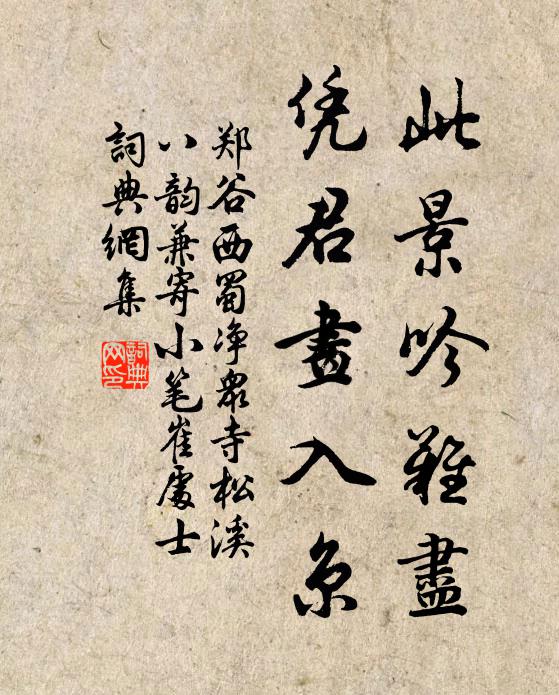 此景吟難盡
凭君畫入京
郑谷西蜀净眾寺松溪
八韵兼寄小笔崔處士
詞典網集
詞典網印